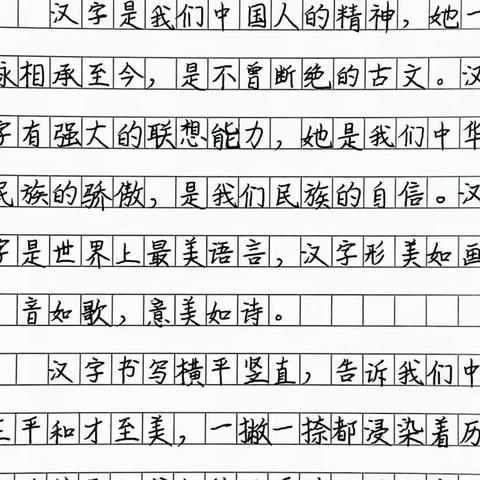 汉字是我们中国人的精神，她一
脉相承至今，是不曾断绝的古文。汉
字有强大的联想能力，她是我们中华
民族的骄傲，是我们民族的自信。汉
字是世界上最美语言，汉字形美如画
音如歌，意美如诗。
汉字书写横平竖直，告诉我们中
正平和才至美，一撇一捺都浸染着历